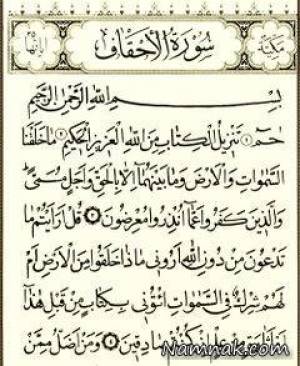 مكية
سورة الأحقاف
آياتها ٣٥
بسم الله الرحمن الرحيم
حم ١ تنزيل الكتاب من الله العزيز الحكيم ٢ ما خلقنا
السموات والأرض وما بينهما إلا بالحق وأجل مسمى
والذين كفروا عما أنذروا معرضون ٣ قل أرأيتم ما
تدعون من دون الله أروني ماذا خلقوا من الأرض أم
لهم شرك في السموات ائتوني بكتاب من قبل هذا
أو أثارة من علم إن كنتم صادقين ٤ ومن أضل ممن
Namnak.com